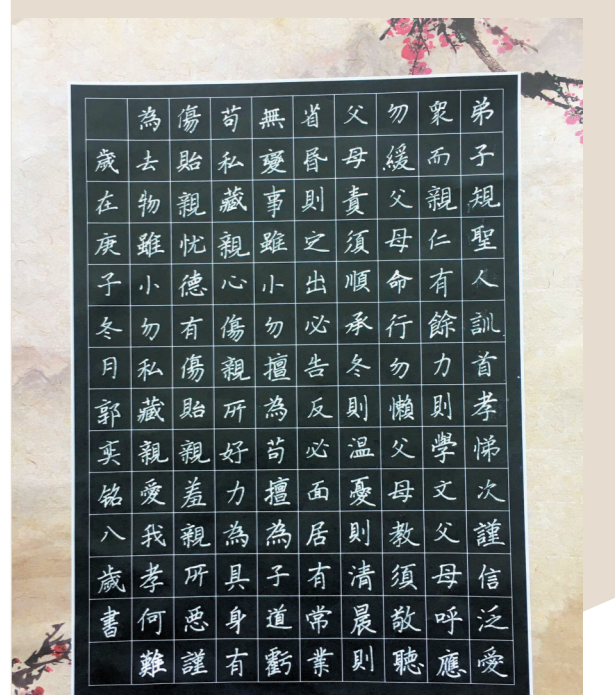 弟子規聖人訓首孝悌次謹信泛愛
衆而親仁有餘力則學文父母呼應
勿緩父母命行勿懶父母教須敬聽
父母責須順承冬則温憂則清晨則
省昏則定出必告反必面居有常業
無變事雖小勿擅為苟擅為子道虧
苟私藏親心傷親所好力為具身有
傷貽親忧德有傷貽親羞親所悪謹
為去物雖小勿私藏親愛我孝何難
歲在庚子冬月郭奕铭八歲書